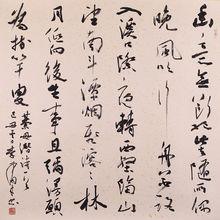 幽意無斷絕此去隨所偶
晚風吹行舟花路
入溪口際夜轉西壑隔山
望南斗潭煙飛溶溶林
月低向後生事且瀰漫願
為持竿叟
綦毋潛詩